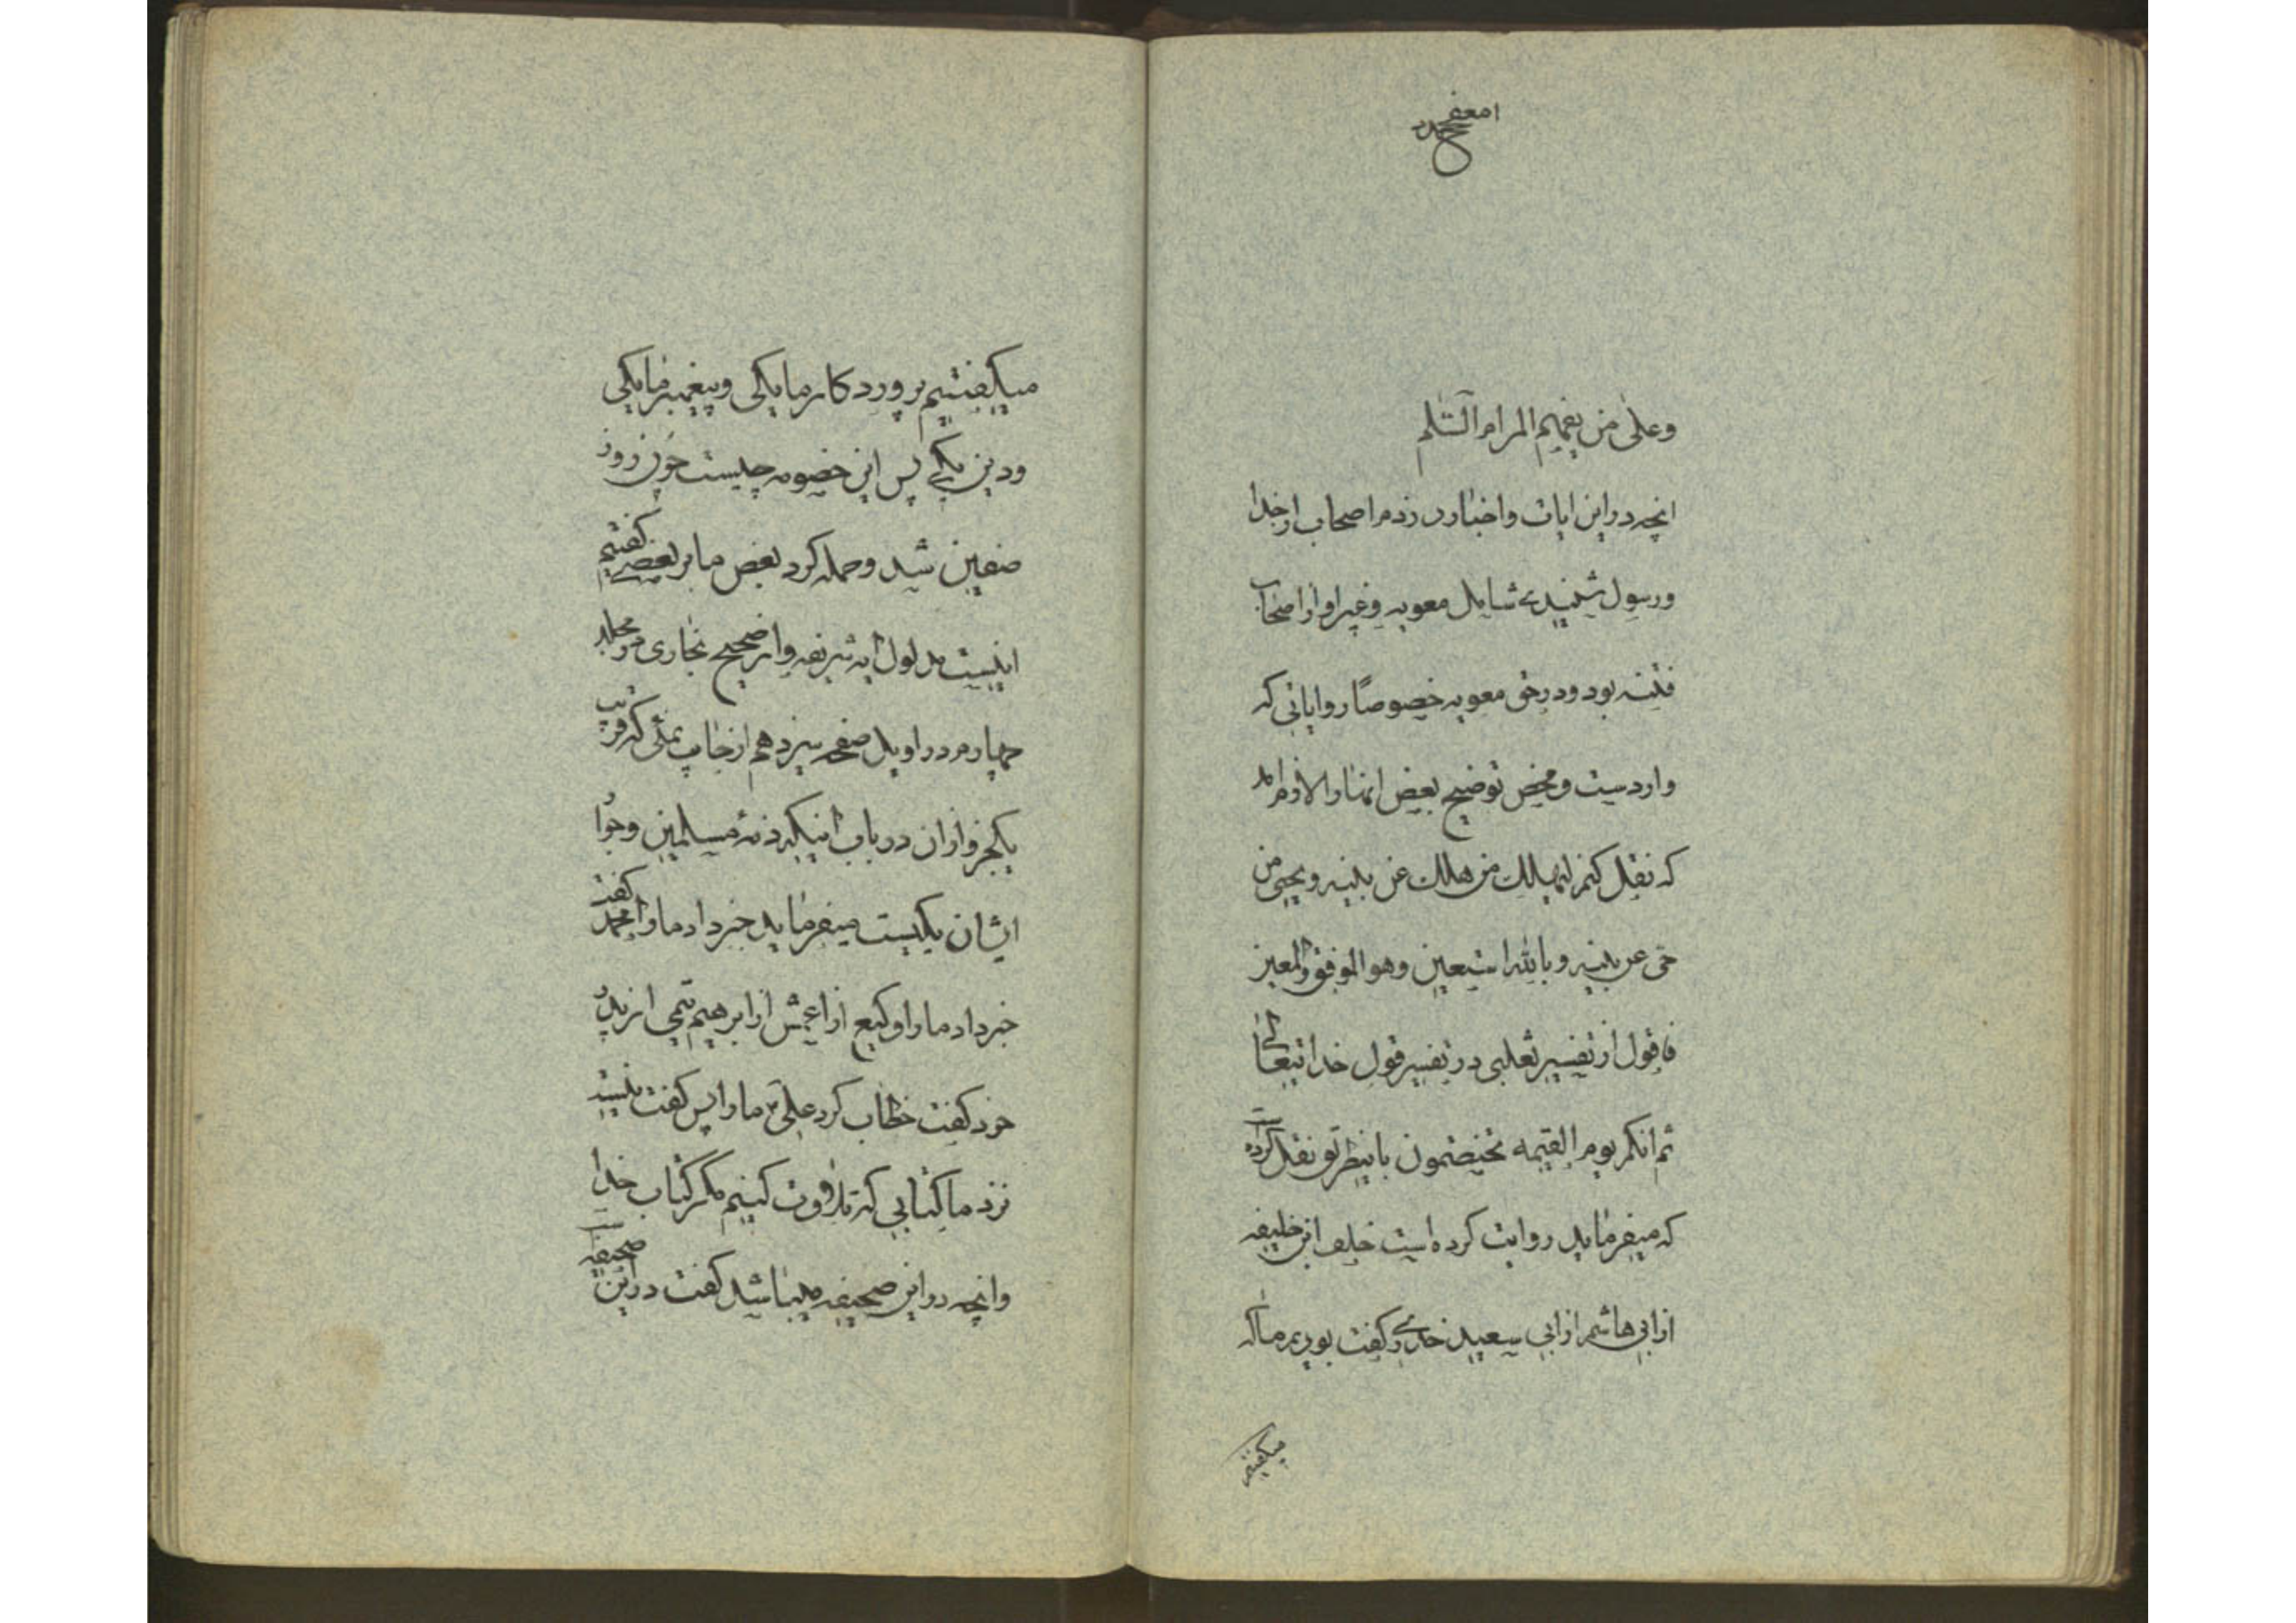 وعلی من یفهم المرام السّلم
انچه در این ایات و اخبار در ذم اصحاب از خدا
و رسول شنیدی شامل معویه و غیر او از اصحاب
فتنه بود و در حق معویه خصوصًا روایاتی که
واردست و محض توضیح بعض انها را لازم امد
که نقل کنم لیهلك من هلك عن بینه و یحیی من
حی عن بینه و بالله استعین و هو الموفق والمعین
فاقول از تفسیر ثعلبی در تفسیر قول خدایتعالی
ثم انکم یوم القیمه تختصمون باینطریق نقل کرده
که میفرماید روایت کرده است خلف ابن خلیفه
از ابی هاشم از ابی سعید خدری گفت بودیم ما که
میگفتیم
میگفتیم پروردکار ما یکی و پیغمبر ما یکی
و دین یکی پس این خصومه چیست چون روز
صفین شد و حمله کرد بعض ما بر بعضی گفتیم
اینست مدلول ایه شریفه و از صحیح بخاری در مجلد
چهارم در اویل صفحه سیزدهم از چاپ بمبئی که قریب
یکجزو از ان در باب انیکه ذمّه مسلمین و جوار
ایشان یکیست میفرماید خبر داد ما را محمد گفت
خبر داد ما را وکیع از اعمش از ابرهیم تیمی از پدر
خود گفت خطاب کرد علی ما را پس گفت نیست
نزد ما کتابی که تلاوت کنیم مگر کتاب خدا
و انچه در این صحیفه میباشد گفت در این صحیفه